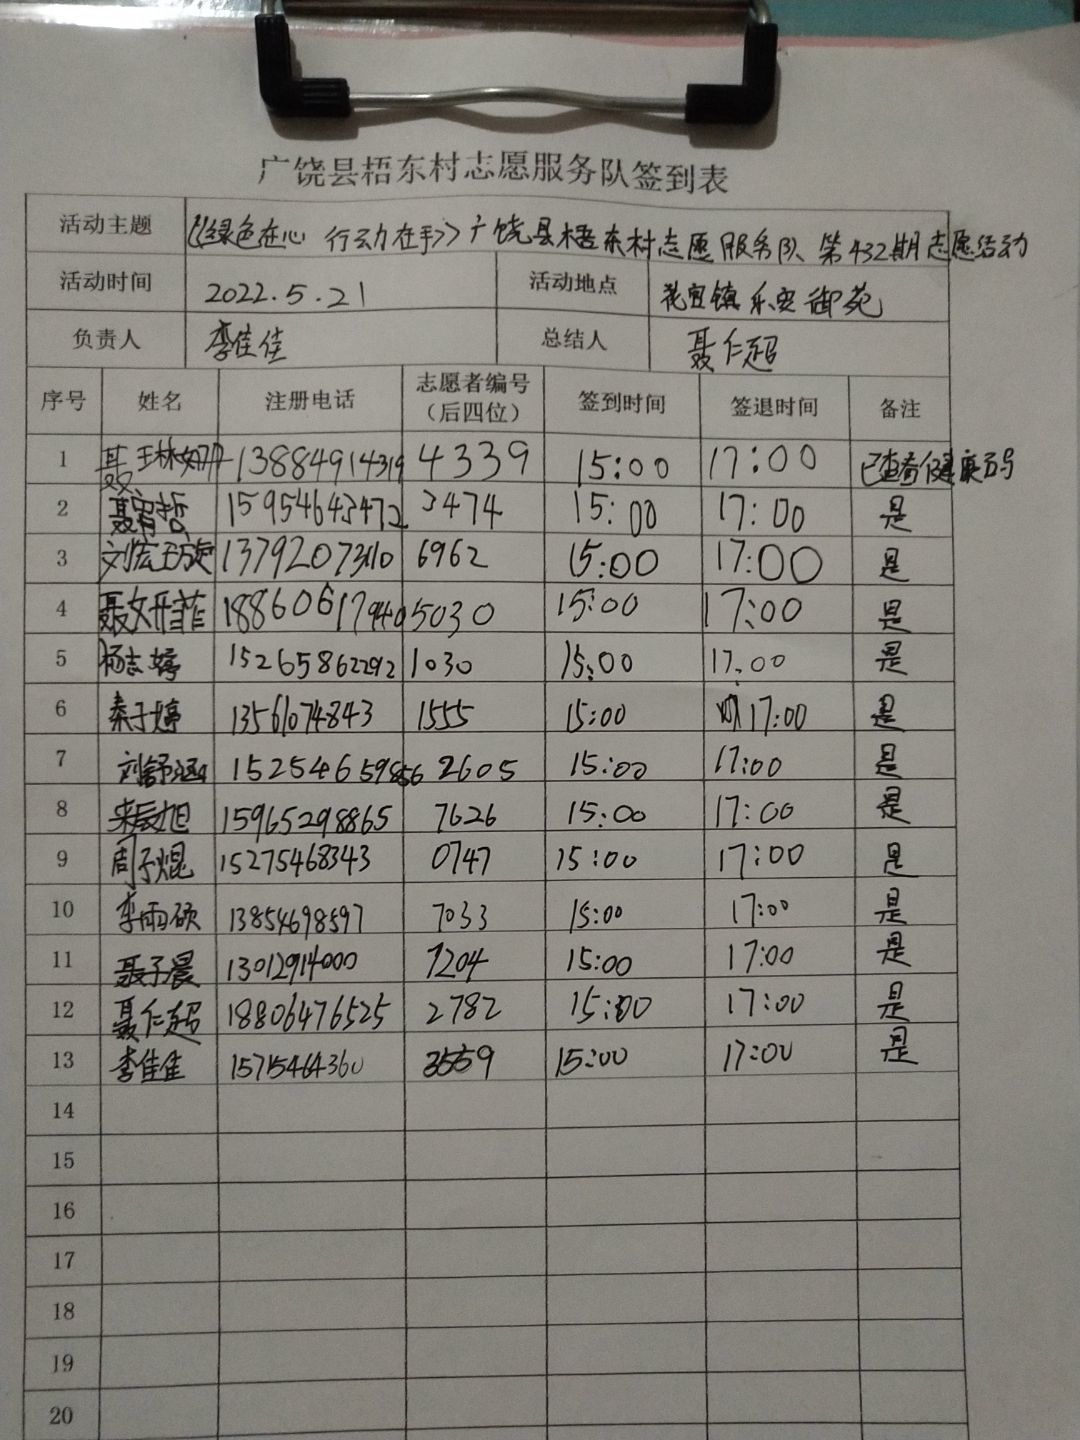 广饶县梧东村志愿服务队签到表
活动主题 《绿色在心 行动在手》广饶县梧东村志愿服务队、第432期志愿活动
活动时间 2022.5.21 活动地点 花官镇乐安御苑
负责人 李佳佳 总结人 聂仁超
序号 姓名 注册电话 志愿者编号（后四位） 签到时间 签退时间 备注
1 13884914319 4339 15:00 17:00 已查看健康码
2 15954643472 3474 15:00 17:00 是
3 6962 15:00 17:00 是
4 聂文丹菲 5030 15:00 17:00 是
5 杨志婷 15265862292 1030 15:00 17:00 是
6 秦子婷 13561074843 1555 15:00 17:00 是
7 刘舒涵 2605 15:00 17:00 是
8 15965298865 7626 15:00 17:00 是
9 周子焜 15275468343 0747 15:00 17:00 是
10 李雨硕 13854698597 7033 15:00 17:00 是
11 聂子晨 13012914000 7204 15:00 17:00 是
12 聂仁超 18806476525 2782 15:00 17:00 是
13 李佳佳 15715464360 3559 15:00 17:00 是
14
15
16
17
18
19
20